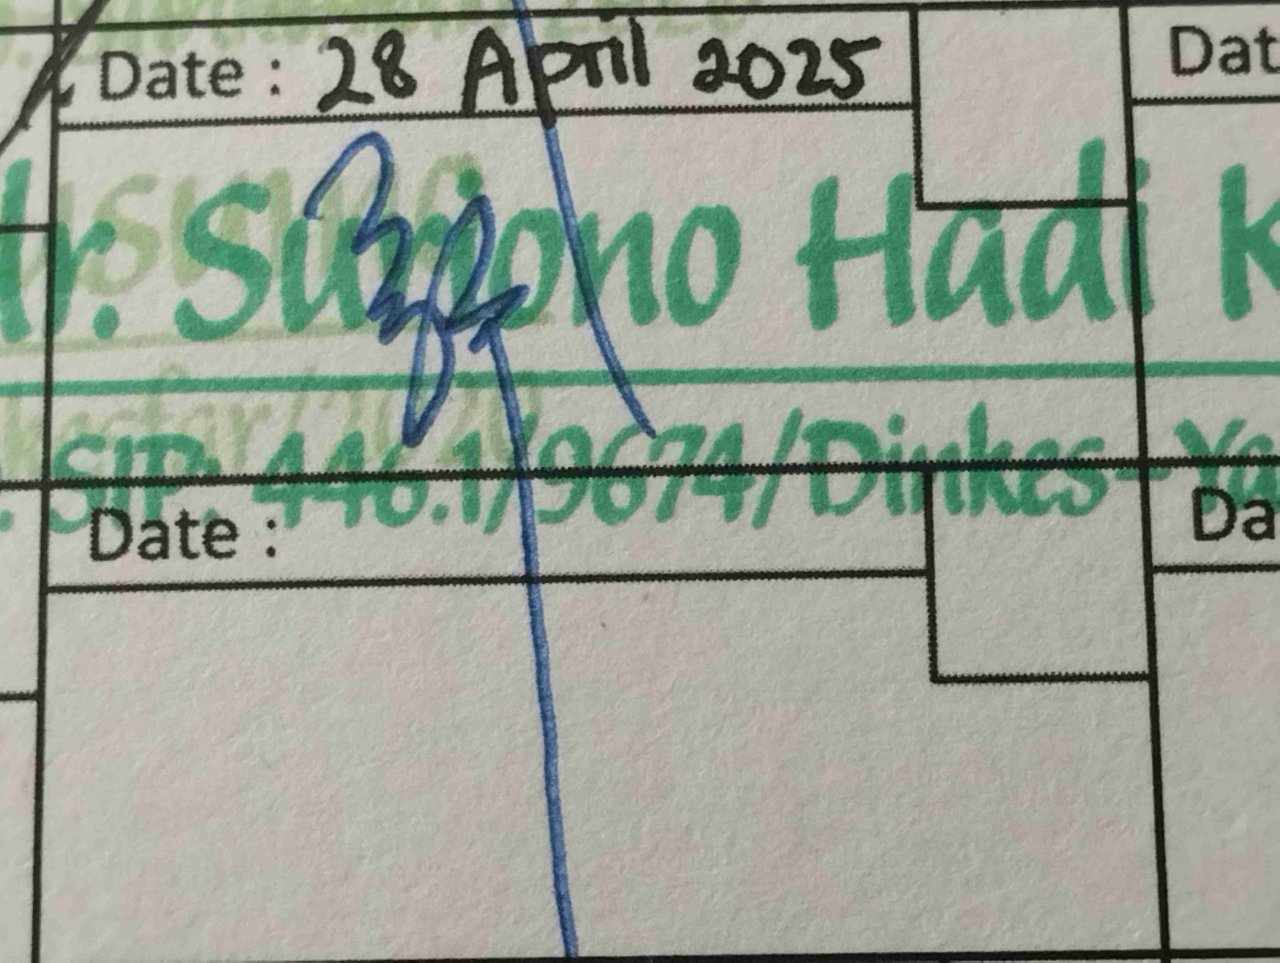 Date : 28 April 2025
Dat
dr. Suriono Hadi K
SIP: 446.1/9674/Dinkes-Ya
Date :
Da